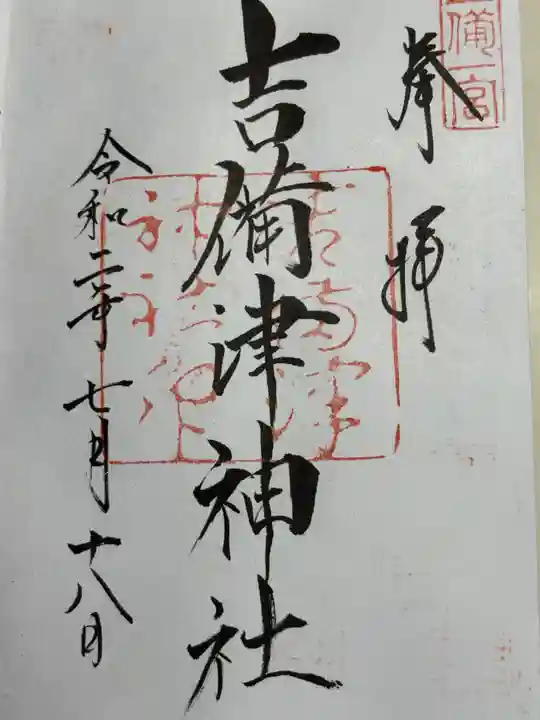 奉拝
吉備津神社
令和二年七月十八日
備宮